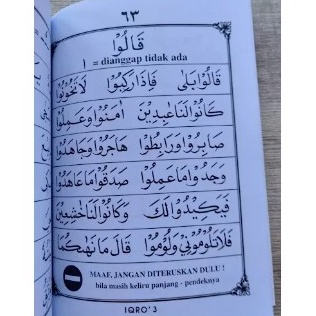 ٦٣
قَالُوْا
ا = dianggap tidak ada
قَالُوْا بَلَى فَإِذَا رَكِبُوْا لَا تَخُوْنُوْا
كَانُوْا لَنَا عَابِدِيْنَ اٰمَنُوْا وَعَمِلُوْا
صَابِرُوْا وَرَابِطُوْا هَاجَرُوْا وَجَاهَدُوْا
وَجَدُوْا مَا عَمِلُوْا صَدَقُوْا مَا عَاهَدُوْا
فَيَكِيْدُوْا لَكَ وَكَانُوْا لَنَا خٰشِعِيْنَ
فَلَا تَلُوْمُوْنِيْ وَلُوْمُوْا قَالَ مَا نَهٰىكُمَا
MAAF, JANGAN DITERUSKAN DULU !
bila masih keliru panjang - pendeknya
IQRO' 3